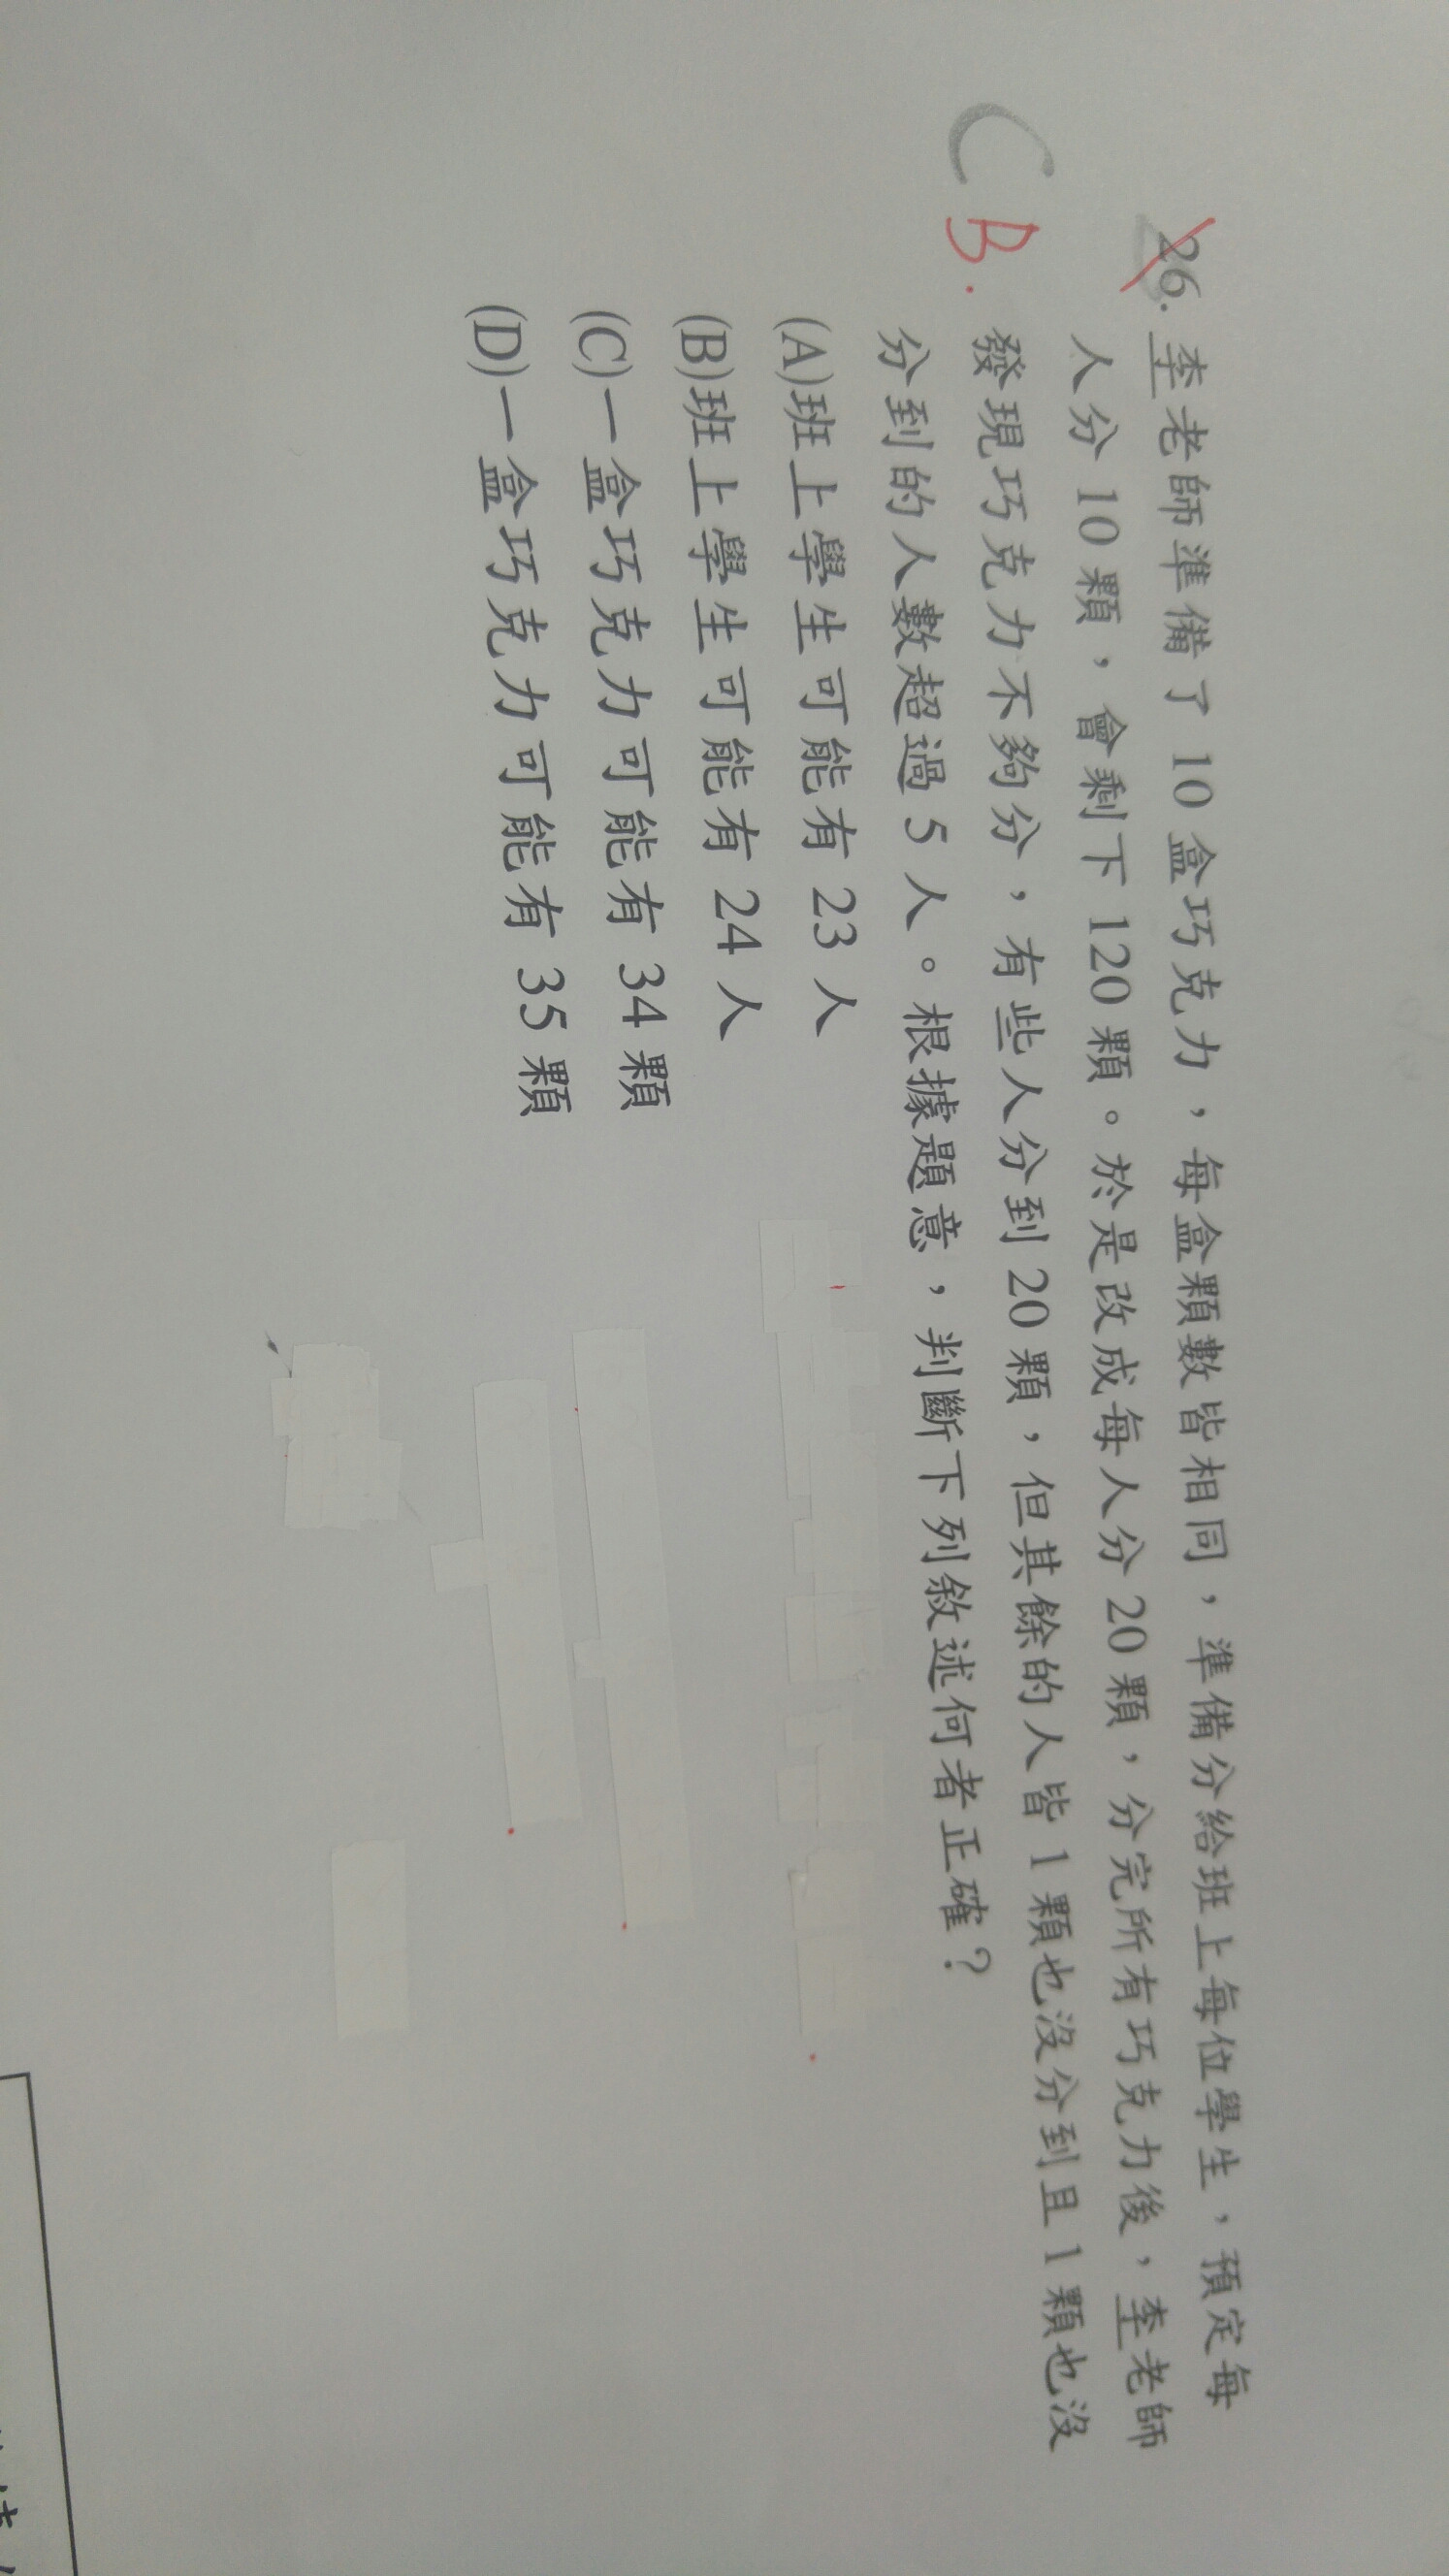 26. 李老師準備了 10 盒巧克力，每盒顆數皆相同，準備分給班上每位學生，預定每
人分 10 顆，會剩下 120 顆。於是改成每人分 20 顆，分完所有巧克力後，李老師
C B. 發現巧克力不夠分，有些人分到 20 顆，但其餘的人皆 1 顆也沒分到且 1 顆也沒
分到的人數超過 5 人。根據題意，判斷下列敘述何者正確？
(A)班上學生可能有 23 人
(B)班上學生可能有 24 人
(C)一盒巧克力可能有 34 顆
(D)一盒巧克力可能有 35 顆